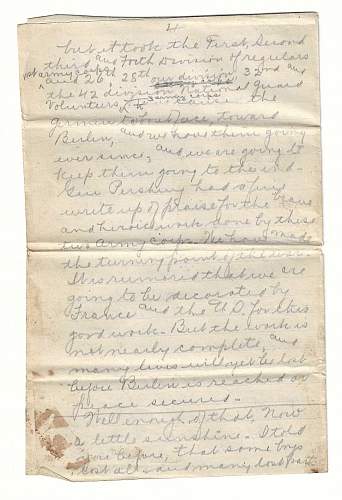 4
but it took the First, Second
third and forth Division of regulars
1st army corps and 26th 28th our division, 32nd and
the 42 division National guard
Volunteers 3 army corps cause the
germans to bout face, toward
Berlin, and we have them going
ever since, and we are going to
keep them going to the end-
Gen Pershing had a fine
write up of praise for the brave
and heroic work done by these
two army corps. We have made
the turning point of the war.
It is rumored that we are
going to be decorated by
France and the U.S. for this
good work- But the work is
not nearly complete, and
many lives will yet be lost
before Berlin is reached or
peace secured.-
Well enough of that, Now
a little sunshine- I told
you before, that some boys
lost all- and many lost part